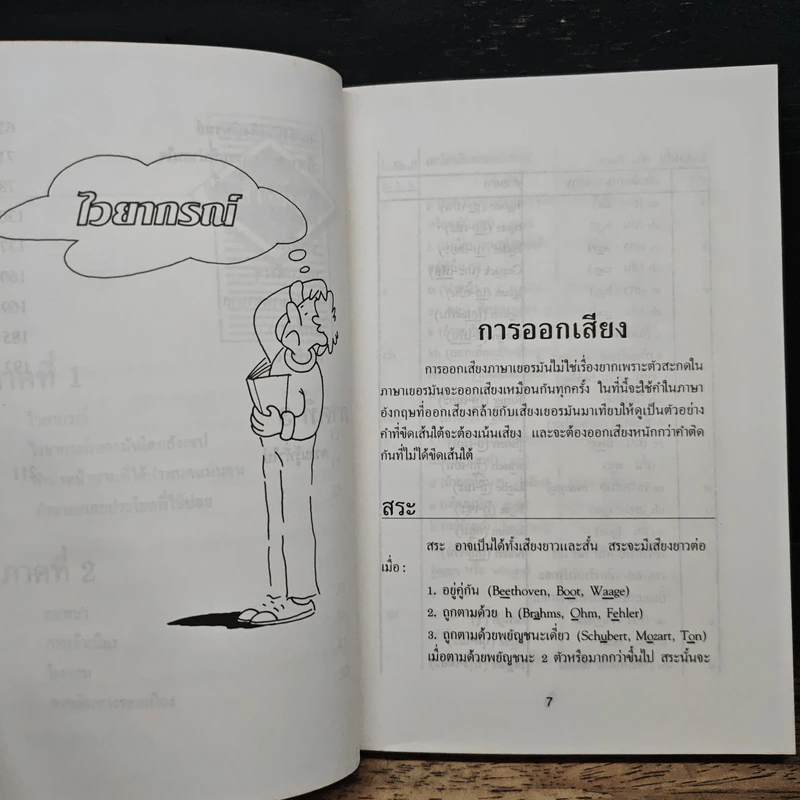 ไวยากรณ์
การออกเสียง
การออกเสียงภาษาเยอรมันไม่ใช่เรื่องยากเพราะตัวสะกดใน
ภาษาเยอรมันจะออกเสียงเหมือนกันทุกครั้ง ในที่นี้จะใช้คำในภาษา
อังกฤษที่ออกเสียงคล้ายกับเสียงเยอรมันมาเทียบให้ดูเป็นตัวอย่าง
คำที่ขีดเส้นใต้จะต้องเน้นเสียง และจะต้องออกเสียงหนักกว่าคำติด
กันที่ไม่ได้ขีดเส้นใต้
สระ
สระ อาจเป็นได้ทั้งเสียงยาวและสั้น สระจะมีเสียงยาวต่อ
เมื่อ :
1. อยู่คู่กัน (Beethoven, Boot, Waage)
2. ถูกตามด้วย h (Brahms, Ohm, Fehler)
3. ถูกตามด้วยพยัญชนะเดี่ยว (Schubert, Mozart, Ton)
เมื่อตามด้วยพยัญชนะ 2 ตัวหรือมากกว่าขึ้นไป สระนั้นจะ
7